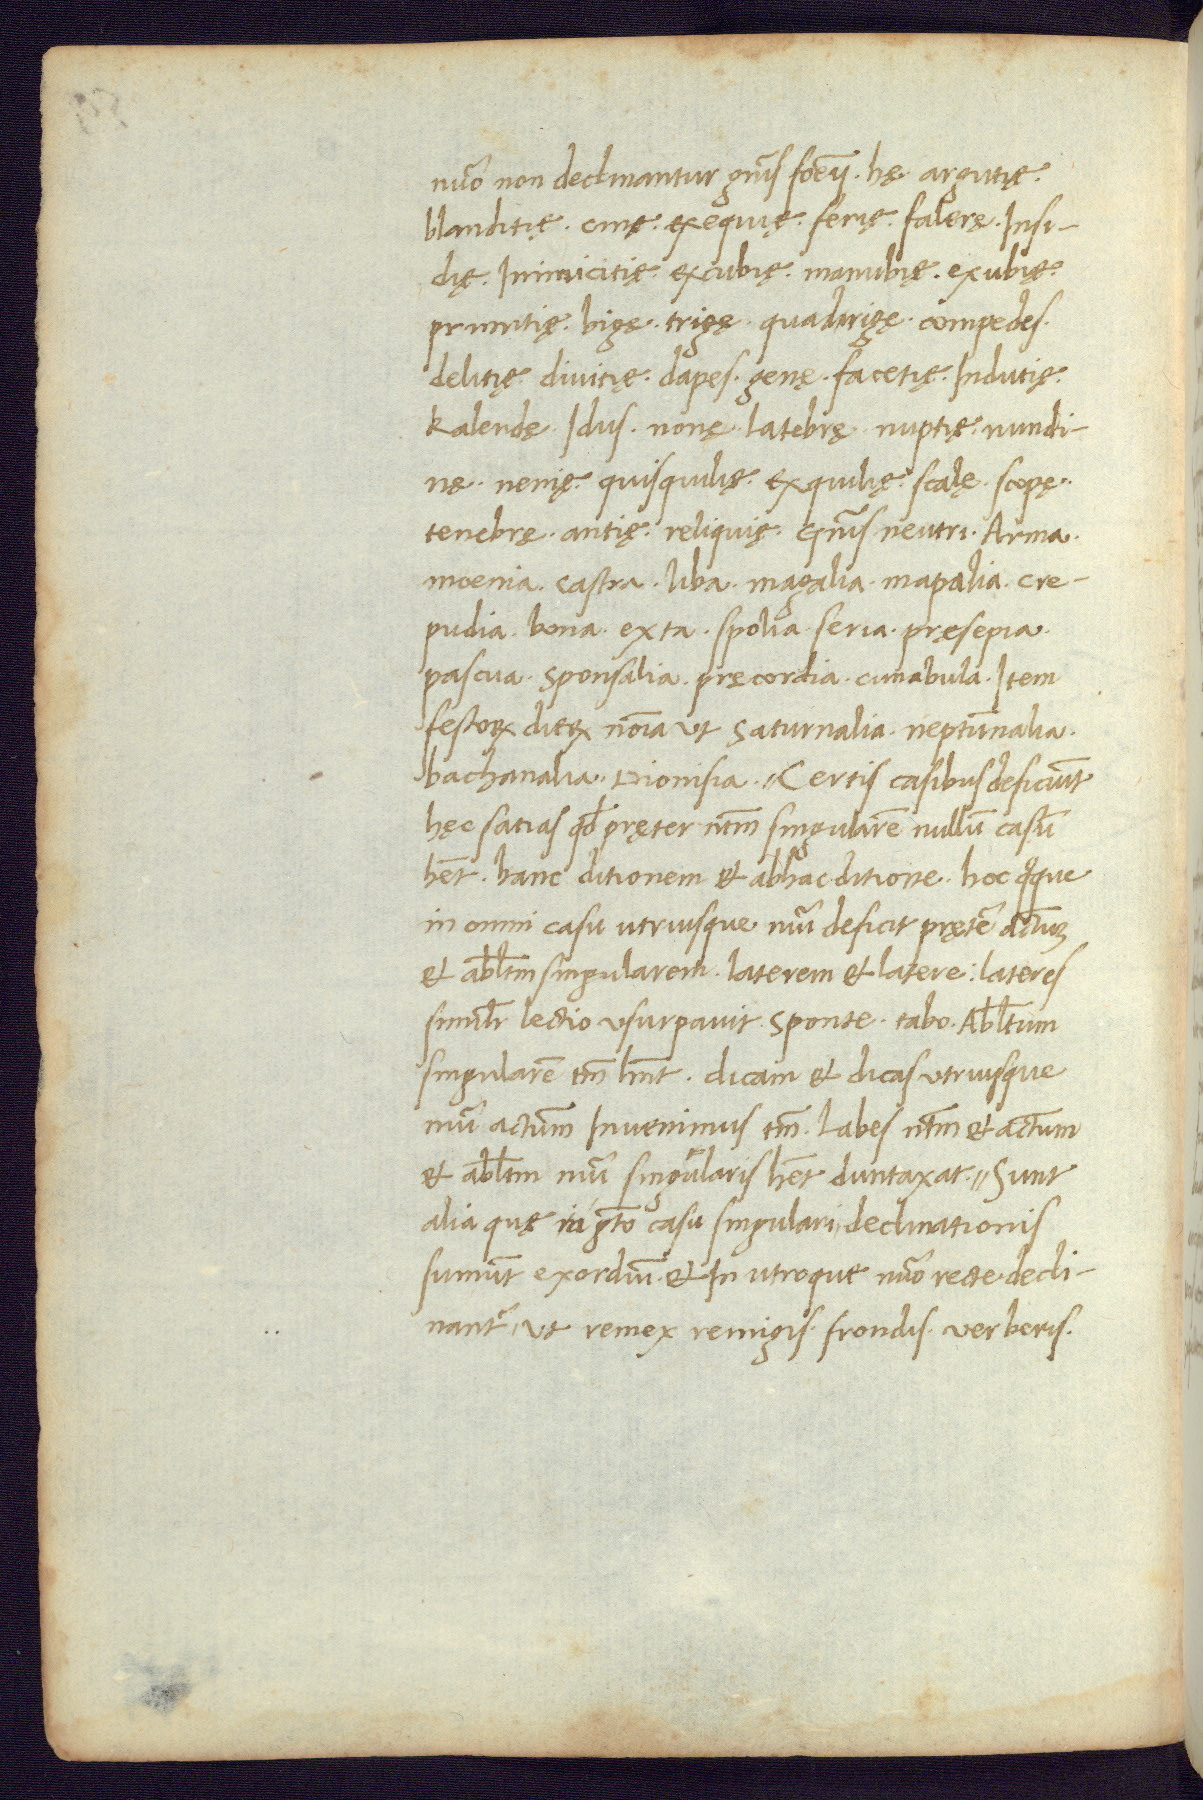 nũo non declinantur gnĩs foẽy. hę argutię.
blanditię. cinę. exequię. ferię. falerę. Insi-
dię. Inimicitię. excubię. manubię. exubię.
primitię. bigę. trigę. quadrigę. compedes.
delitię. divitię. dapes. genę. facetię. Indutię.
Kalendę. Idus. nonę. latebrę. nuptię. nundi-
nę. nenię. quisquilię. exquilię. scalę. scopę.
tenebrę. antię. reliquię. Gnĩs neutri. Arma.
moenia. castra. liba. magalia. mapalia. cre-
pudia. bona. exta. spolia. seria. pręsepia.
pascua. sponsalia. pręcordia. cunabula. Item
festoꝝ dieꝝ noĩa ut saturnalia. neptũnalia.
bachanalia. Dionisia. // Certis casibus deficiũt
hęc satias qđ pręter ntm̃ singularẽ nullũ casũ
hẽt. hanc ditionem & ab hac ditione. hoc qͦque
in omni casu utriusque nũi deficit pręteͬ actũꝫ
& abl̃tm singularem. laterem & latere: lateres
simil̃r lectio usurpavit. sponte. tabo. Abl̃tum
singularẽ tm̃ hñt. dicam & dicas utriusque
nũi actũm Invenimus tm̃. Labes ntm̃ & actũm
& abl̃tm nũi singularis hẽt duntaxat. // Sunt
alia quę in gt̃o casu singulari, declinationis
sumũt exordiũ. & In utroque nũo recte decli-
nantͬ, ut remex remigis. frondis. verberis.